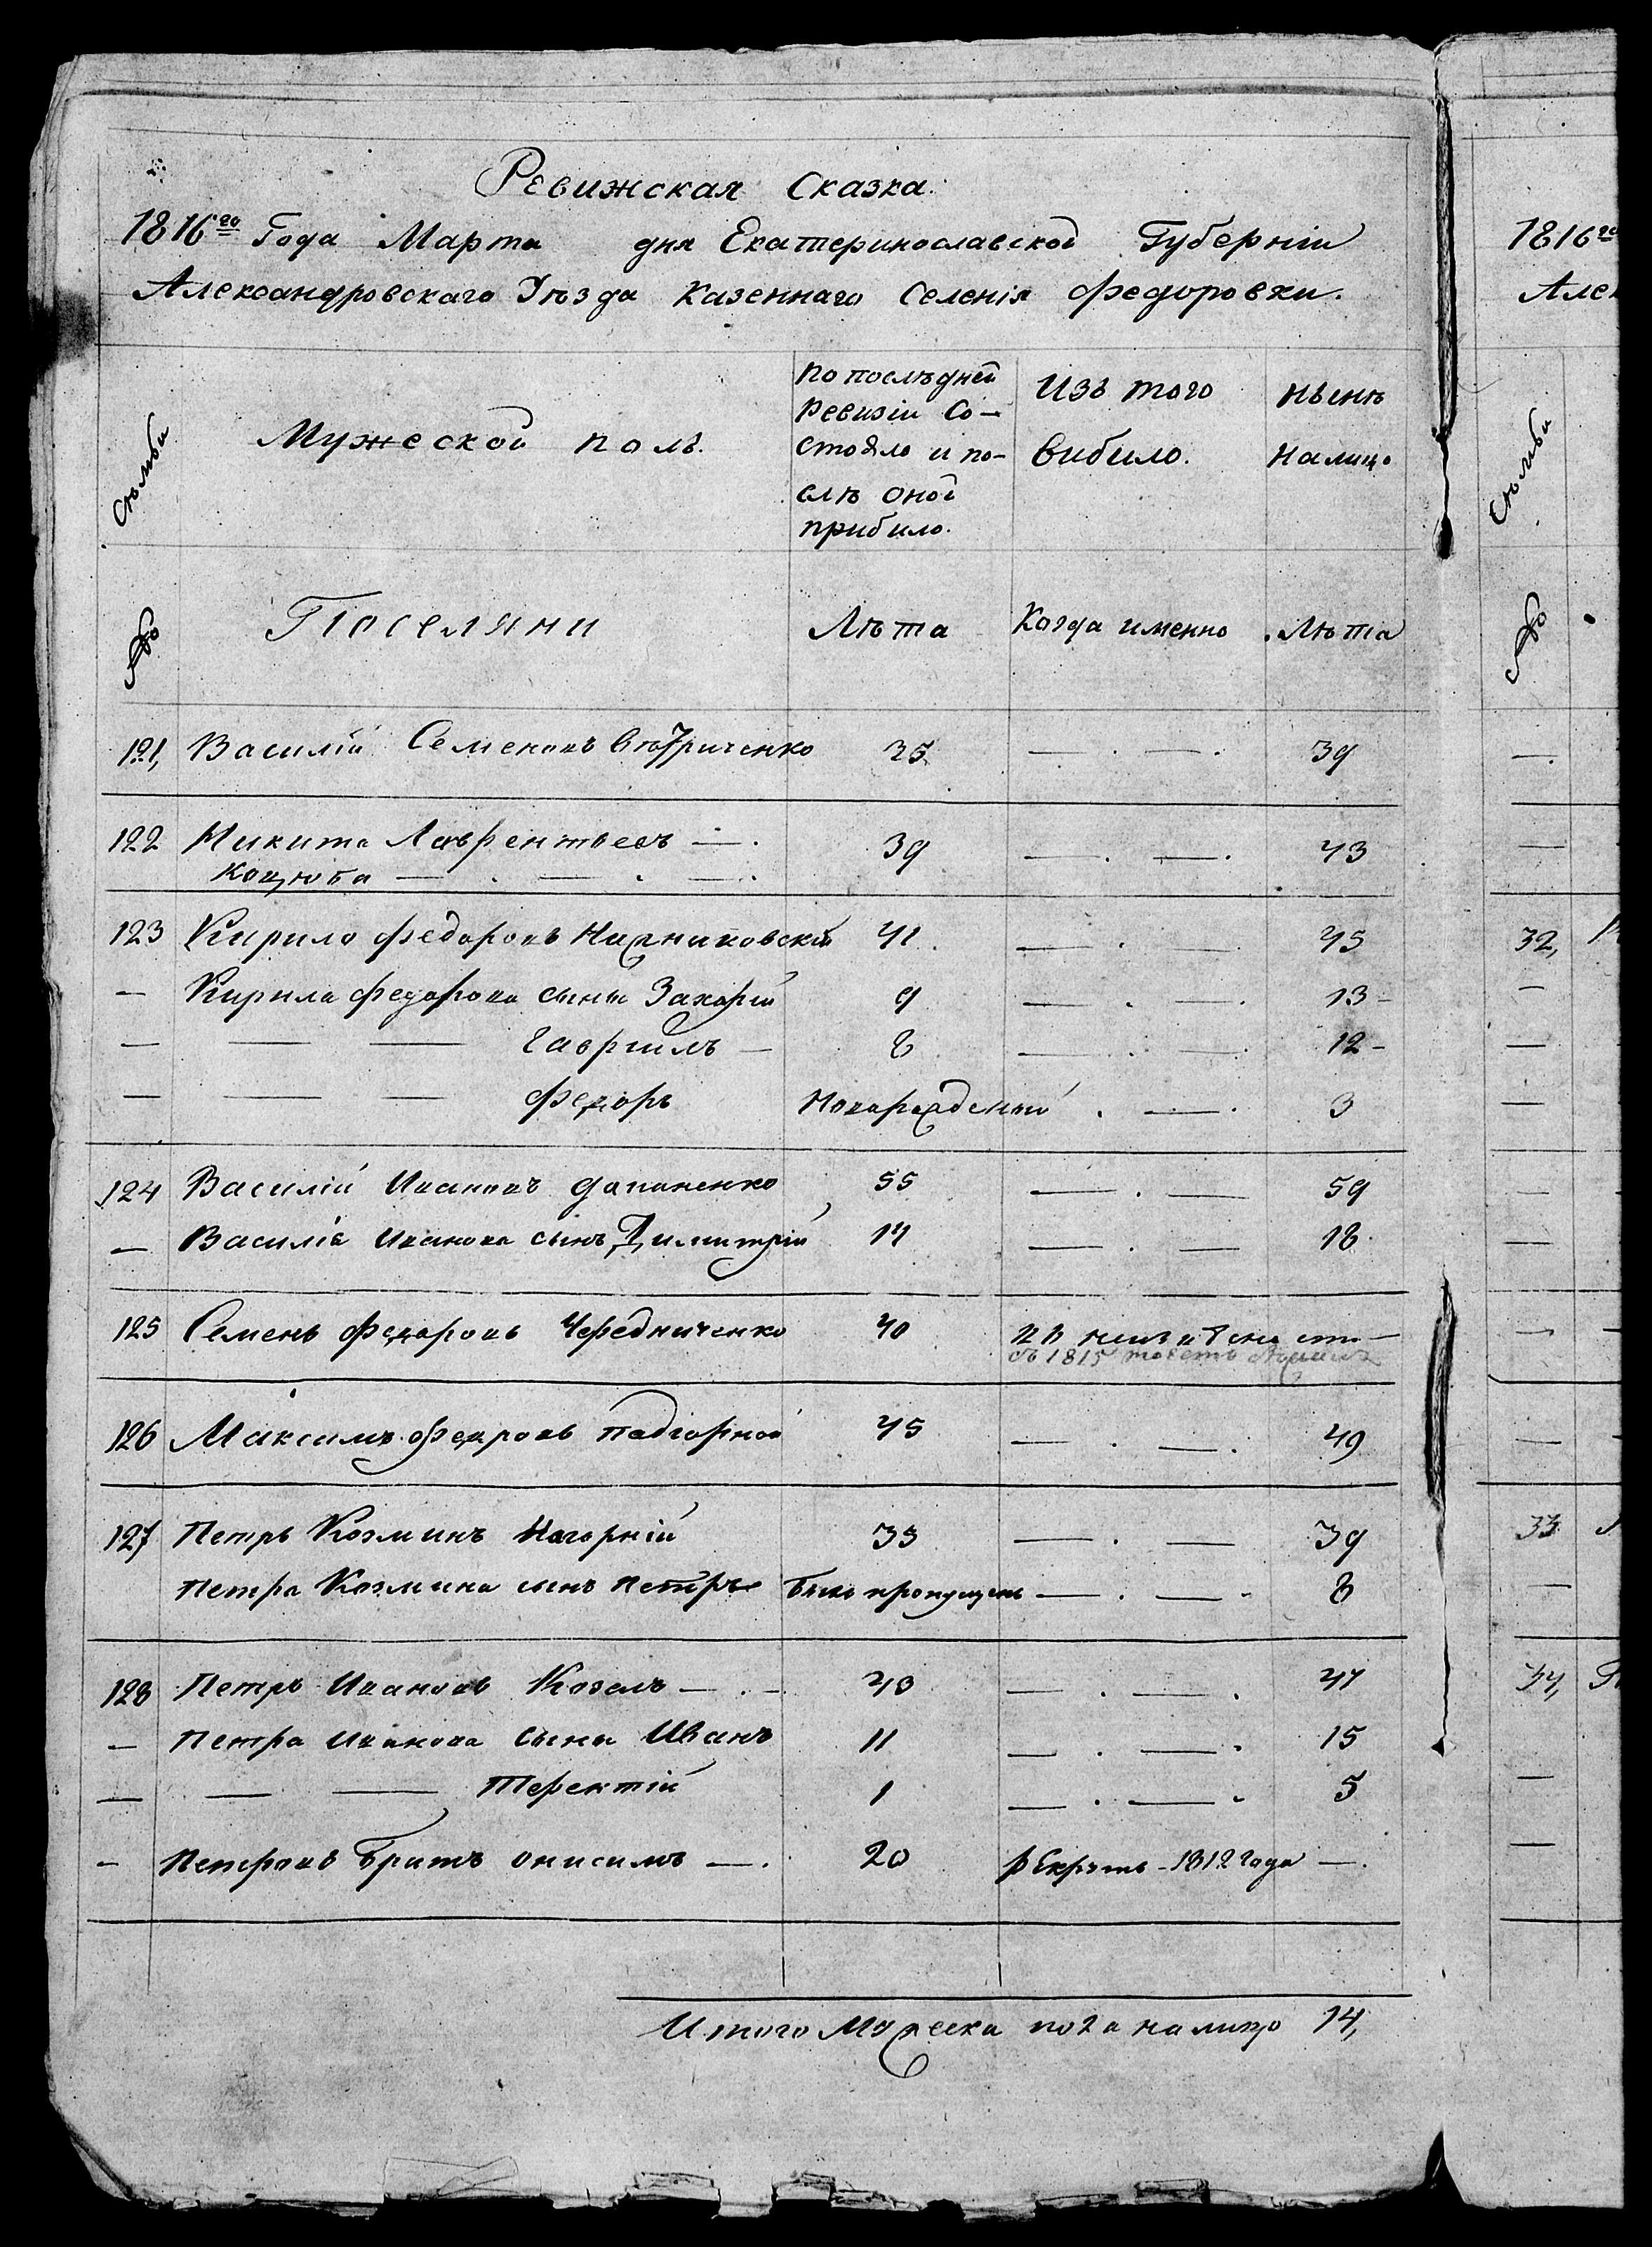 Ревижская Сказка.
1816го Года Марта дня Екатеринославской Губерніи
Александровскаго Уѣзда Казеннаго Селенія Федоровки.
Сѣмьи
Мужеской полъ.
По послѣдней
Ревизіи Со-
стояло и по-
слѣ оной
прибило.
Изъ того
вибило.
Нынѣ
Налицо
№
Поселяни
Лѣта
Когда именно
Лѣта
121, Василій Семеновъ 35 — . — . 39
122 Никита Лаврентьевъ — . 39 — . — . 43
Коцюба — . — . — .
123 Кирило Федоровъ 41 — . — 45
— Кирила Федорова сыны Захарій 9 — . — . 13 -
— — — Гавріилъ — 8 — . — . 12 -
— — — Федоръ Новорожденный . — . 3
124 Василій Ивановъ 55 — . — 59
— Василія Иванова сынъ Димитрій 14 — . — 18
125 Семенъ Федоровъ Чередниченко 40
въ 1815
126 Максимъ Федоровъ Подгорной 45 — . — . 49
127 Петръ Козминъ Нагорній 35 — . — 39
Петра Козмина сынъ Петръ Былъ пропущенъ — . — - 8
128 Петръ Ивановъ Козелъ — . - 43 — . — . 47
— Петра Иванова сыны Иванъ 11 — . — . 15
— — — Терентій 1 — . — - 5
- Петровъ Братъ Онисимъ — . 20 рЕкрутъ - 1812 года — .
Итого Мужеска пола налицо 14,
1816го
Алек
Сѣмьи
№
32,
33
34,